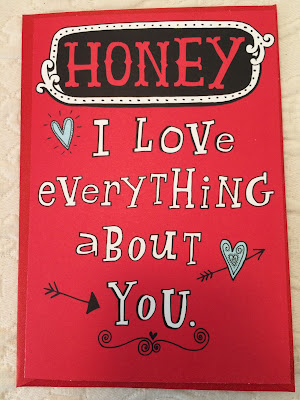 HONEY
I LOVE
everyTHING
aBOUT
YOU.